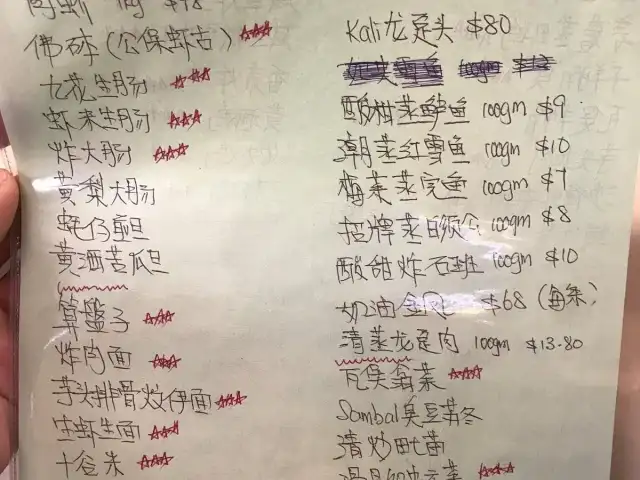 佛砵(公保虾古) ☆☆☆
九花生肠 ☆☆☆
虾米生肠 ☆☆☆
炸大肠 ☆☆☆
黄梨大肠
蚝仔煎旦
黄酒苦瓜旦
算盤子 ☆☆☆
炸肉面 ☆☆☆
芋头排骨炆伊面 ☆☆☆
生虾生面 ☆☆☆
十谷米 ☆☆☆
Kali龙趸头 $80
酸柑蒸鲈鱼 100gm $9
潮蒸红雪鱼 100gm $10
梅菜蒸完鱼 100gm $7
招牌蒸日须公 100gm $8
酸甜炸石班 100gm $10
奶油金凤 $68 (每条)
清蒸龙趸肉 100gm $13.80
瓦煲翁菜 ☆☆☆
Sambal臭豆芦冬
清炒